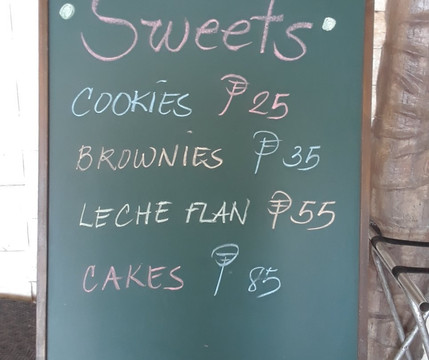 Sweets
COOKiES ₱25
BROWNiES ₱35
LECHE FLAN ₱55
CAKES ₱85